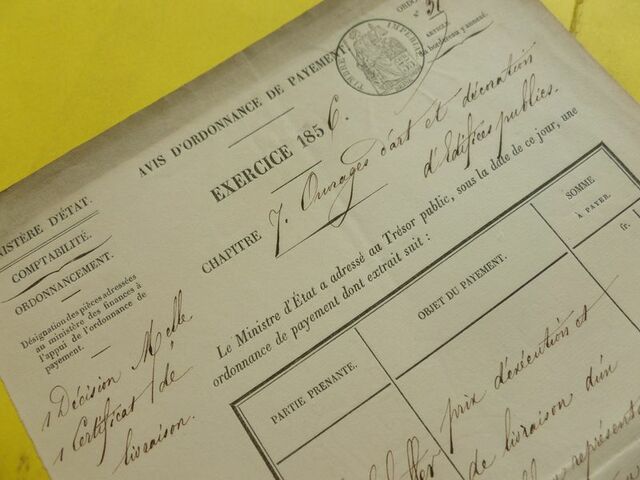 ORDO
N° 37
ARTICLE
du bordereau y annexé.
TIMBRE IMPÉRIAL
AVIS D'ORDONNANCE DE PAYEMENT
EXERCICE 1856.
CHAPITRE 7. Ouvrages d'art et décoration
d'Edifices publics.
NISTÈRE D'ÉTAT.
COMPTABILITÉ.
ORDONNANCEMENT.
Désignation des pièces adressées
au ministère des finances à
l'appui de l'ordonnance de
payement.
1 Décision Melle
1 Certificat de
livraison.
Le Ministre d'État a adressé au Trésor public, sous la date de ce jour, une
ordonnance de payement dont extrait suit :
PARTIE PRENANTE.
OBJET DU PAYEMENT.
SOMME
À PAYER.
fr.
prix d'exécution et
de livraison d'un
représent